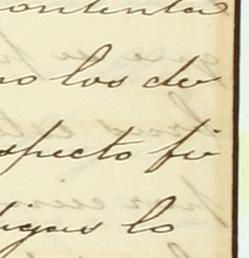 ontenta
no los de
specto fi
igas lo